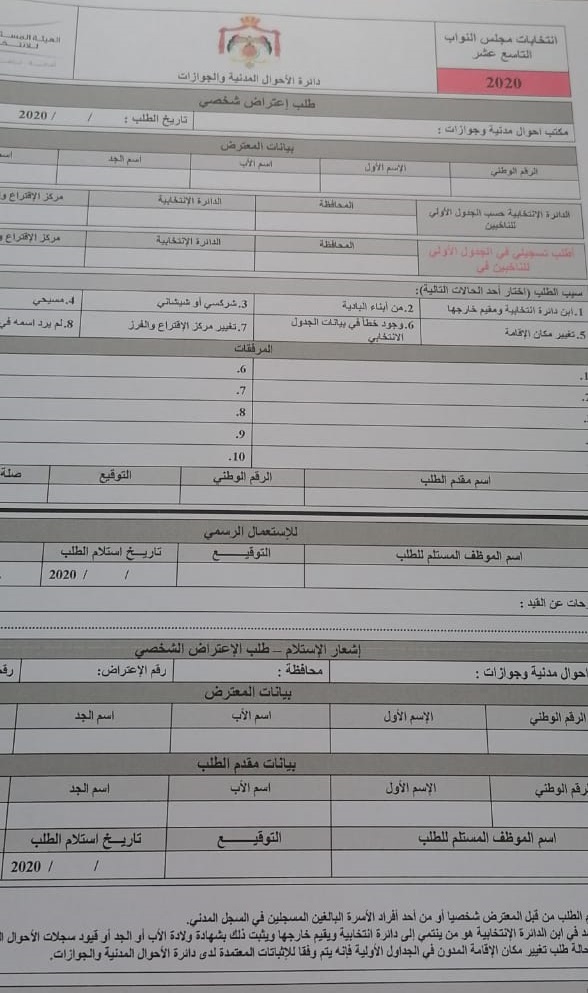 انتخابات مجلس النواب
التاسع عشر
2020
دائرة الأحوال المدنية والجوازات
طلب إعتراض شخصي
مكتب احوال مدنية وجوازات : تاريخ الطلب : / / 2020
بيانات المعترض
الرقم الوطني الإسم الأول اسم الأب اسم الجد
الدائرة الانتخابية حسب الجدول الأولي للناخبين المحافظة الدائرة الانتخابية مركز الإقتراع و
أطلب تسجيلي في الجدول الأولي للناخبين في المحافظة الدائرة الانتخابية مركز الإقتراع و
سبب الطلب (اختار أحد الحالات التالية):
1.ابن دائرة انتخابية ومقيم خارجها 2.من أبناء البادية 3.شركسي أو شيشاني 4.مسيحي
5.تغيير مكان الإقامة 6.وجود خطأ في بيانات الجدول الانتخابي 7.تغيير مركز الإقتراع والفرز 8.لم يرد اسمه في
المرفقات
1. 6.
2. 7.
8.
9.
10.
اسم مقدم الطلب الرقم الوطني التوقيع صلة
للإستعمال الرسمي
اسم الموظف المستلم للطلب التوقيـــــع تاريـخ استلام الطلب
/ / 2020
عن القيد :
إشعار الإستلام – طلب الإعتراض الشخصي
احوال مدنية وجوازات : محافظة : رقم الإعتراض:
بيانات المعترض
الرقم الوطني الإسم الأول اسم الأب اسم الجد
بيانات مقدم الطلب
الرقم الوطني الإسم الأول اسم الأب اسم الجد
اسم الموظف المستلم للطلب التوقيـــــع تاريـخ استلام الطلب
/ / 2020
الطلب من قبل المعترض شخصيا أو من أحد أفراد الأسرة البالغين المسجلين في السجل المدني.
في ابن الدائرة الإنتخابية هو من ينتمي إلى دائرة انتخابية ويقيم خارجها ويثبت ذلك بشهادة ولادة الأب أو الجد أو قيود سجلات الأحوال
حالة طلب تغيير مكان الإقامة المدون في الجداول الأولية فإنه يتم وفقا للإثباتات المعتمدة لدى دائرة الأحوال المدنية والجوازات.